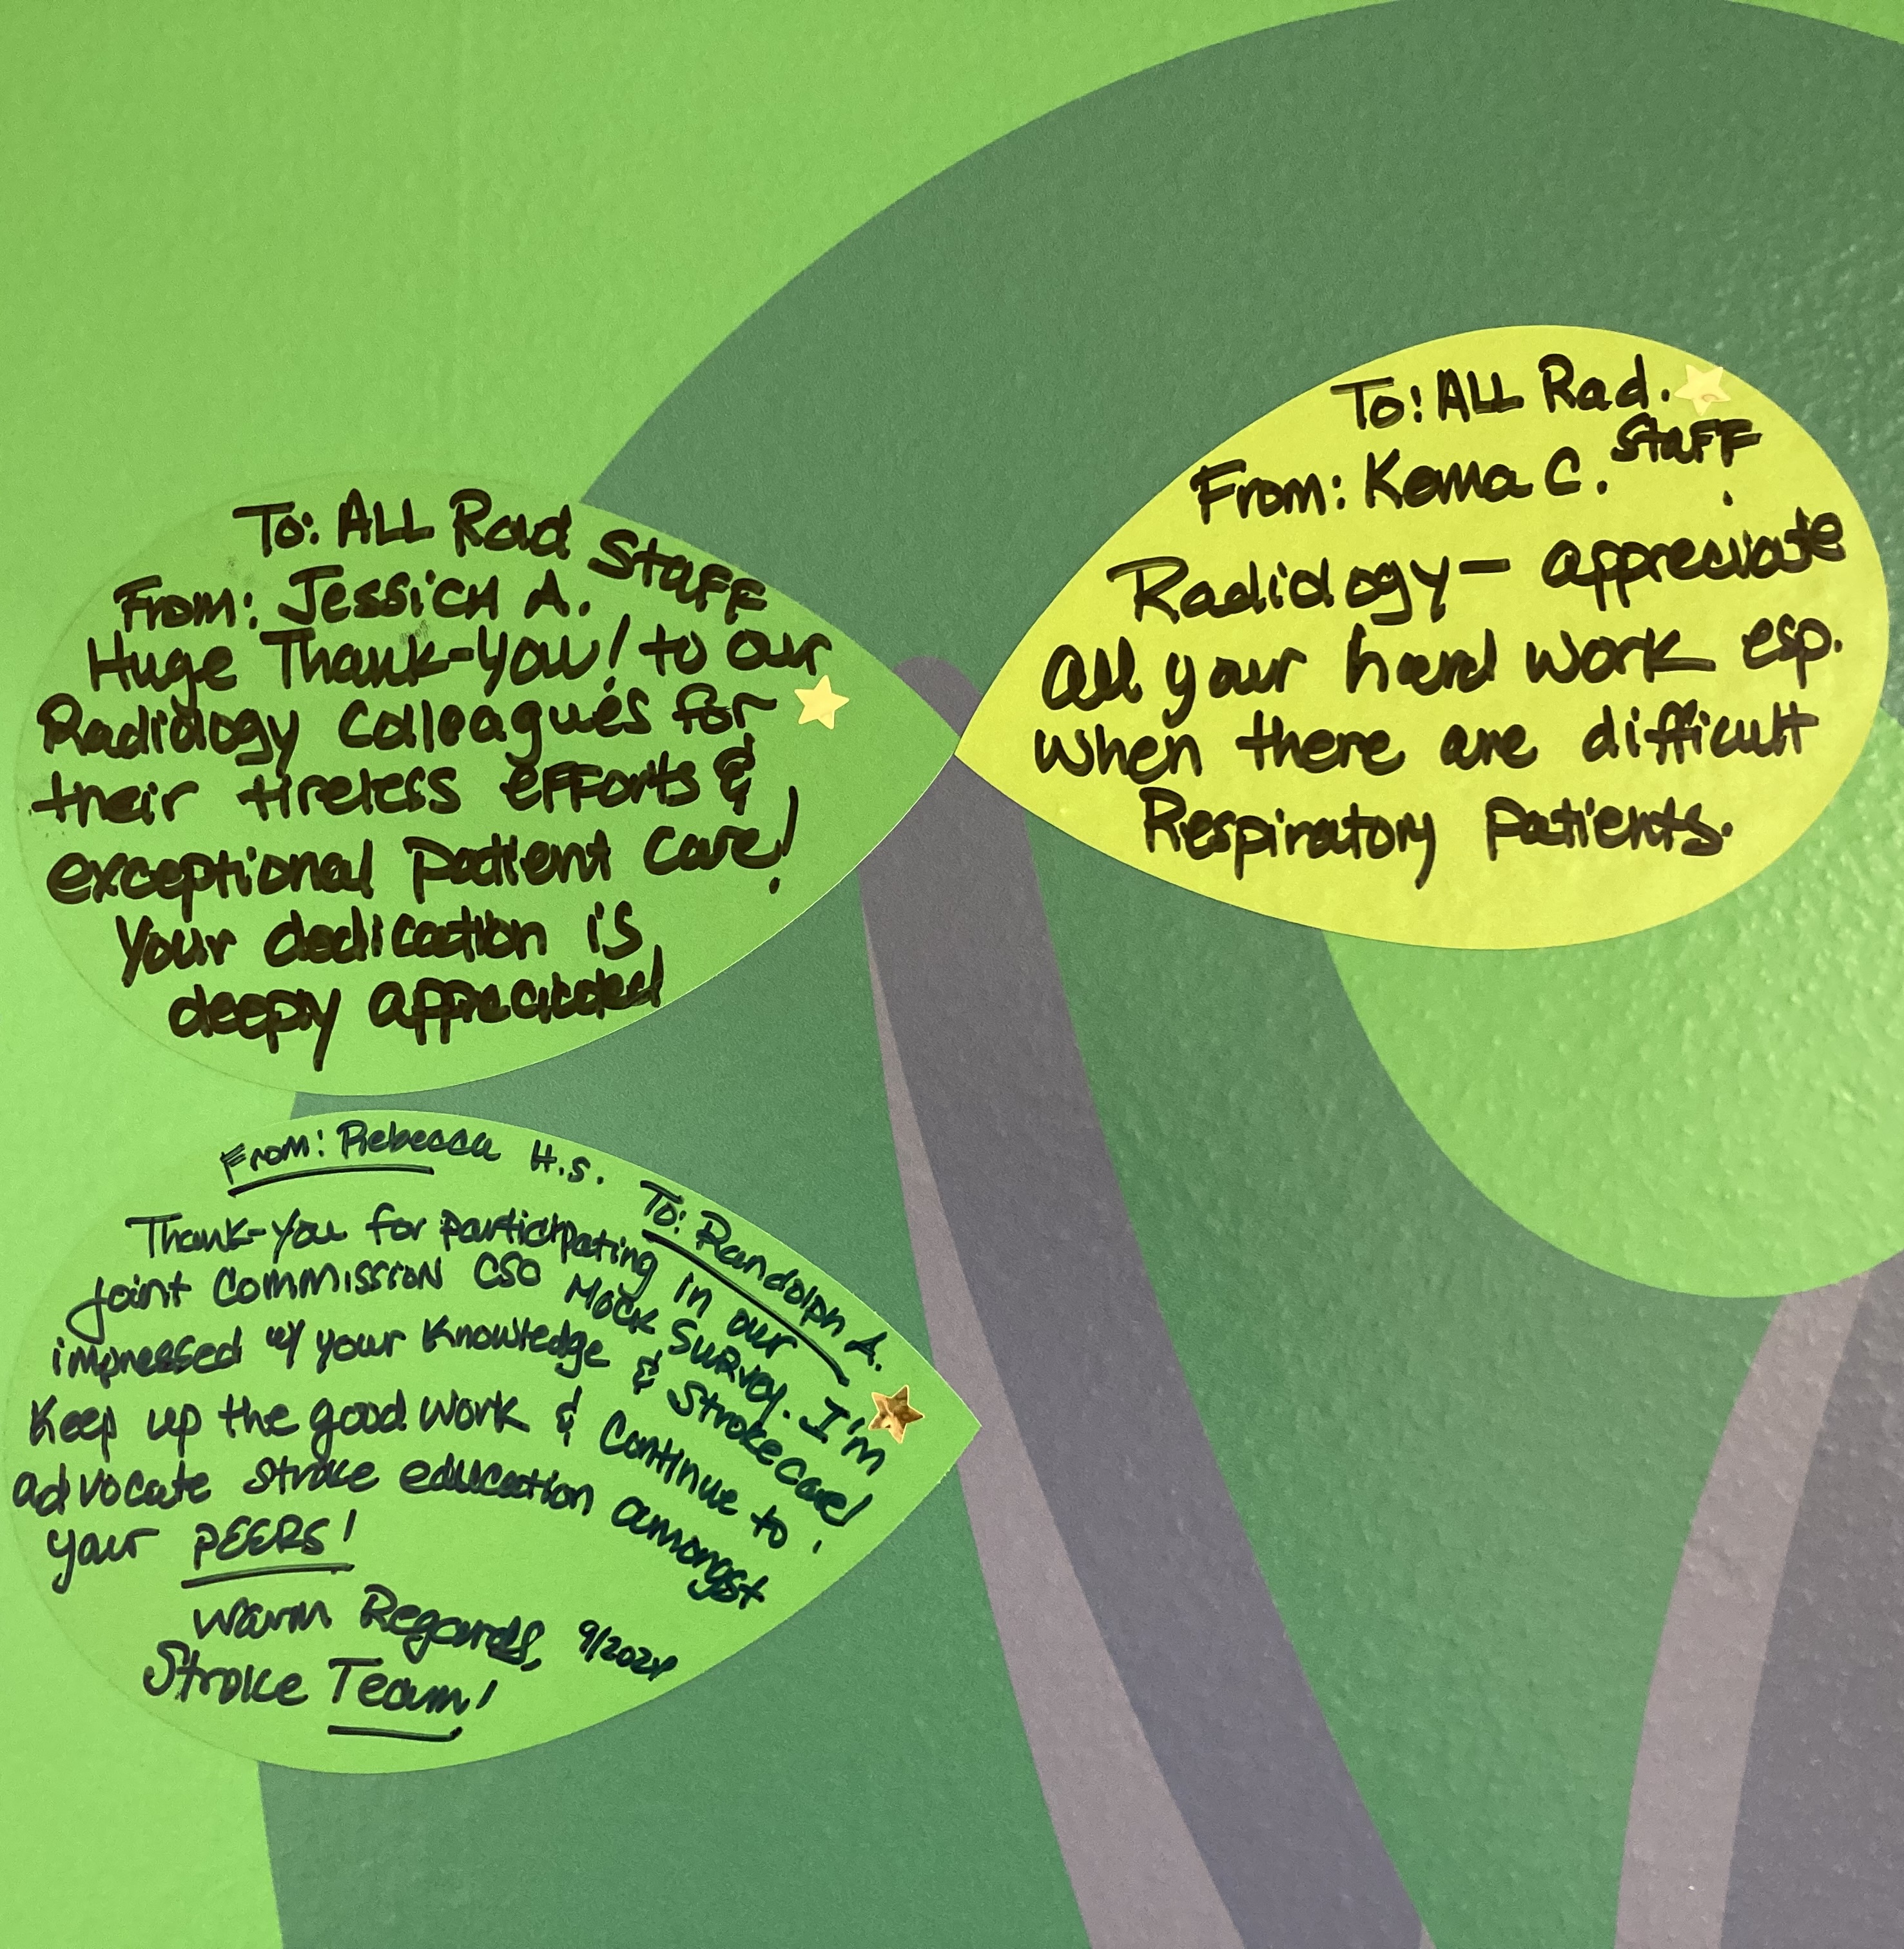 To: ALL Rad Staff
From: Jessica A.
Huge Thank-you! to our
Radiology Colleagues for
their tireless efforts &
exceptional patient care!
Your dedication is
deeply appreciated
To: ALL Rad. Staff
From: Kema C.
Radiology - appreciate
all your hard work esp.
when there are difficult
Respiratory patients.
From: Rebecca H.S. To: Randolph A.
Thank-you for participating in our
Joint Commission CSO Mock Survey. I'm
impressed w/ your knowledge & stroke care!
Keep up the good work & continue to
advocate stroke education amongst
your PEERS!
Warm Regards, 9/2024
Stroke Team!